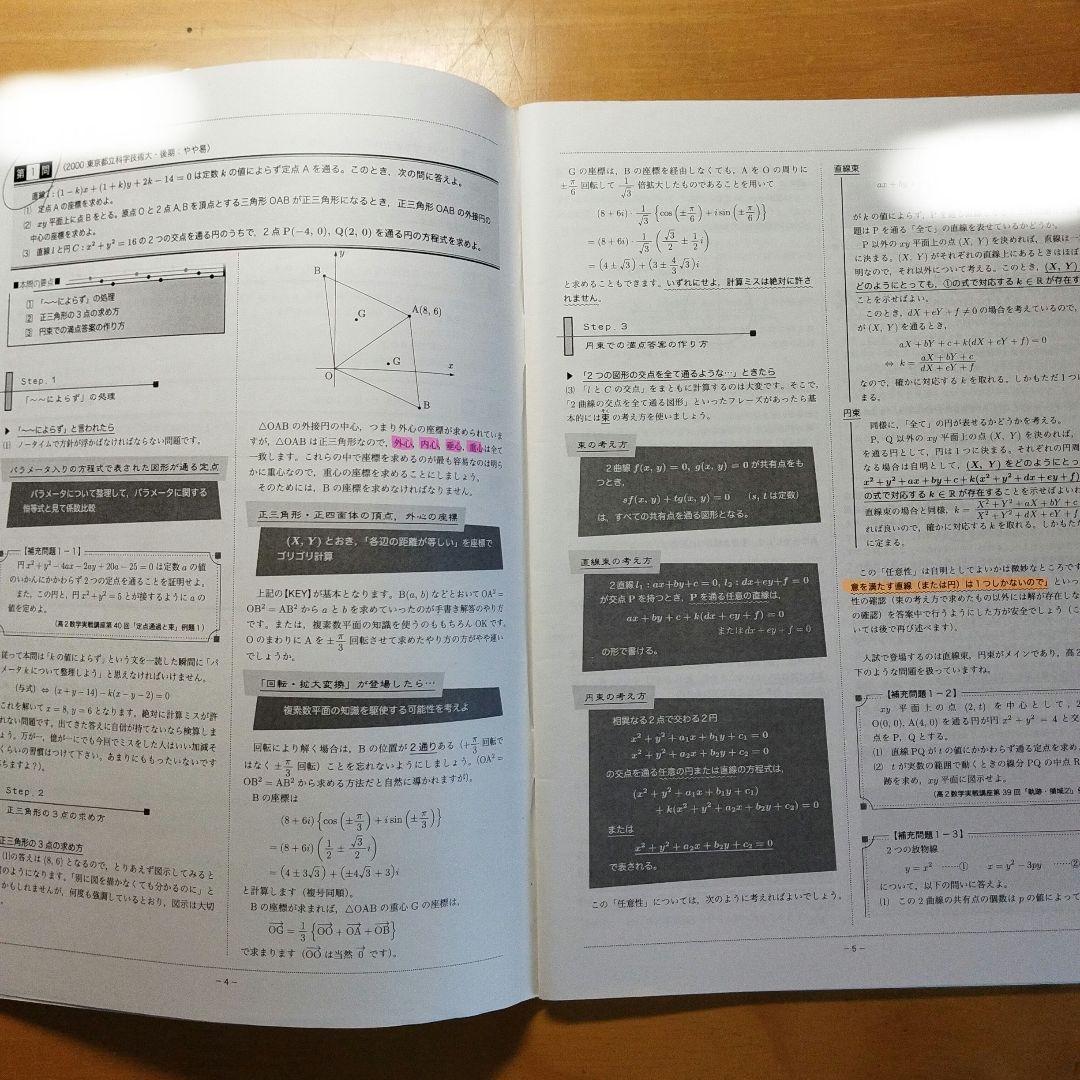 第1問 (2000 東京都立科学技術大・後期:やや易)
直線 l : (1−k)x+(1+k)y+2k−14=0 は定数 k の値によらず定点 A を通る。このとき、次の問に答えよ。
(1) 定点 A の座標を求めよ。
(2) xy 平面上に点 B をとる。原点 O と 2 点 A, B を頂点とする三角形 OAB が正三角形になるとき、正三角形 OAB の外接円の
中心の座標を求めよ。
(3) 直線 l と円 C : x²+y²=16 の 2 つの交点を通る円のうちで、2 点 P(−4, 0), Q(2, 0) を通る円の方程式を求めよ。
■本問の要点■
① 「〜〜によらず」の処理
② 正三角形の3点の求め方
③ 円束での満点答案の作り方
Step. 1
「〜〜によらず」の処理
▶ 「〜〜によらず」と言われたら
(1) ノータイムで方針が浮かばなければならない問題です。
パラメータ入りの方程式で表された図形が通る定点
パラメータについて整理して、パラメータに関する
恒等式と見て係数比較
【補充問題1−1】
円 x²+y²−4ax−2ay+20a−25=0 は定数 a の値
のいかんにかかわらず2つの定点を通ることを証明せよ。
また、この円と、円 x²+y²=5 とが接するように a の
値を定めよ。
(高2数学実戦講座第40回「定点通過と束」例題1)
従って本問は「k の値によらず」という文を一読した瞬間に「パ
メータ k について整理しよう」と思えなければいけません。
(与式) ⇔ (x+y−14)−k(x−y−2)=0
これを解いて x=8, y=6 となります。絶対に計算ミスが許
れない問題です。出てきた答えに自信が持てないなら検算しま
ょう。万が一、億が一にでも今回でミスをした人はいい加減そ
くらいの習慣はつけて下さい。あまりにももったいないです
ちますよ?)。
Step. 2
正三角形の3点の求め方
正三角形の3点の求め方
(1)の答えは (8, 6) となるので、とりあえず図示してみると
のようになります。「別に図を描かなくても分かるのに」と
かもしれませんが、何度も強調しているとおり、図示は大切
y
B
G
A(8, 6)
G
O
x
B
△OAB の外接円の中心、つまり外心の座標が求められていま
すが、△OAB は正三角形なので、外心、内心、垂心、重心は全て
一致します。これらの中で座標を求めるのが最も容易なのは明ら
かに重心なので、重心の座標を求めることにしましょう。
そのためには、B の座標を求めなければなりません。
正三角形・正四面体の頂点、外心の座標
(X, Y) とおき、「各辺の距離が等しい」を座標で
ゴリゴリ計算
上記の【KEY】が基本となります。B(a, b) などとおいて OA²=
OB²=AB² から a と b を求めていったのが手書き解答のやり方
です。または、複素数平面の知識を使うのももちろん OK です。
O のまわりに A を ±π/3 回転させて求めたやり方の方がやや速い
でしょうか。
「回転・拡大変換」が登場したら…
複素数平面の知識を駆使する可能性を考えよ
回転により解く場合は、B の位置が2通りある (+π/3 回転で
はなく ±π/3 回転) ことを忘れないようにしましょう。(OA²=
OB²=AB² から求める方法だと自然に導かれますが)。
B の座標は
(8+6i){cos(±π/3)+i sin(±π/3)}
=(8+6i)(1/2±√3/2 i)
=(4±3√3)+(±4√3+3)i
と計算します (複号同順)。
B の座標が求まれば、△OAB の重心 G の座標は、
OG=1/3{OO+OA+OB}
で求まります (OO は当然 0 です)。
−4−
G の座標は、B の座標を経由しなくても、A を O の周りに
±π/6 回転して 1/√3 倍拡大したものであることを用いて
(8+6i)·1/√3{cos(±π/6)+i sin(±π/6)}
=(8+6i)·1/√3(√3/2±1/2 i)
=(4±√3)+(3±4/3√3)i
と求めることもできます。いずれにせよ、計算ミスは絶対に許さ
れません。
Step. 3
円束での満点答案の作り方
▶ 「2つの図形の交点を全て通るような…」ときたら
(3) 「l と C の交点」をまともに計算するのは大変です。そこで、
「2曲線の交点を全て通る図形」といったフレーズがあったら基
本的には束の考え方を使いましょう。
束の考え方
2曲線 f(x, y)=0, g(x, y)=0 が共有点をも
つとき、
sf(x, y)+tg(x, y)=0 (s, t は定数)
は、すべての共有点を通る図形となる。
直線束の考え方
2直線 l₁ : ax+by+c=0, l₂ : dx+ey+f=0
が交点 P を持つとき、P を通る任意の直線は、
ax+by+c+k(dx+ey+f)=0
または dx+ey+f=0
の形で書ける。
円束の考え方
相異なる2点で交わる2円
x²+y²+a₁x+b₁y+c₁=0
x²+y²+a₂x+b₂y+c₂=0
の交点を通る任意の円または直線の方程式は、
(x²+y²+a₁x+b₁y+c₁)
+k(x²+y²+a₂x+b₂y+c₂)=0
または
x²+y²+a₂x+b₂y+c₂=0
で表される。
この「任意性」については、次のように考えればよいでしょう。
直線束
が k の値によらず、P を通る
題は P を通る「全て」の直線を表せているかどうか。
P 以外の xy 平面上の点 (X, Y) を決めれば、直線は一
に決まる。(X, Y) がそれぞれの直線上にあるときはほぼ
明なので、それ以外について考える。このとき、(X, Y)
どのようにとっても、①の式で対応する k∈R が存在す
ことを示せばよい。
このとき、dX+eY+f≠0 の場合を考えているので、
が (X, Y) を通るとき、
aX+bY+c+k(dX+eY+f)=0
⇔ k=aX+bY+c/dX+eY+f
なので、確かに対応する k を取れる。しかもただ1つ
まる。
円束
同様に、「全て」の円が表せるかどうかを考える。
P, Q 以外の xy 平面上の点 (X, Y) を決めれば、
を通る円として、円は1つに決まる。それぞれの円周
なる場合は自明として、(X, Y) をどのようにとっ
x²+y²+ax+by+c+k(x²+y²+dx+ey+f)
の式で対応する k∈R が存在することを示せばよい
直線束の場合と同様、k=X²+Y²+aX+bY+c/X²+Y²+dX+eY+f
れば良いので、確かに対応する k を取れる。しかもただ
に定まる。
この「任意性」は自明としてよいかは微妙なところです
意を満たす直線(または円)は1つしかないので」といっ
性の確認 (束の考え方で求めたもの以外には解が存在しな
の確認) を答案中で行うようにした方が安全でしょう (こ
いては後で再び述べます)。
入試で登場するのは直線束、円束がメインであり、高2
下のような問題を扱っていますね。
【補充問題1−2】
xy 平面上の点 (2, t) を中心として、2
O(0, 0), A(4, 0) を通る円が円 x²+y²=4 と交
点を P, Q とする。
(1) 直線 PQ が t の値にかかわらず通る定点を求め
(2) t が実数の範囲で動くときの線分 PQ の中点 R
跡を求め、xy 平面に図示せよ。
(高2数学実戦講座第39回「軌跡・領域②」
【補充問題1−3】
2つの放物線
y=x² ……① x=y²−3py ……②
について、以下の問いに答えよ。
(1) この2曲線の共有点の個数は p の値によって
−5−